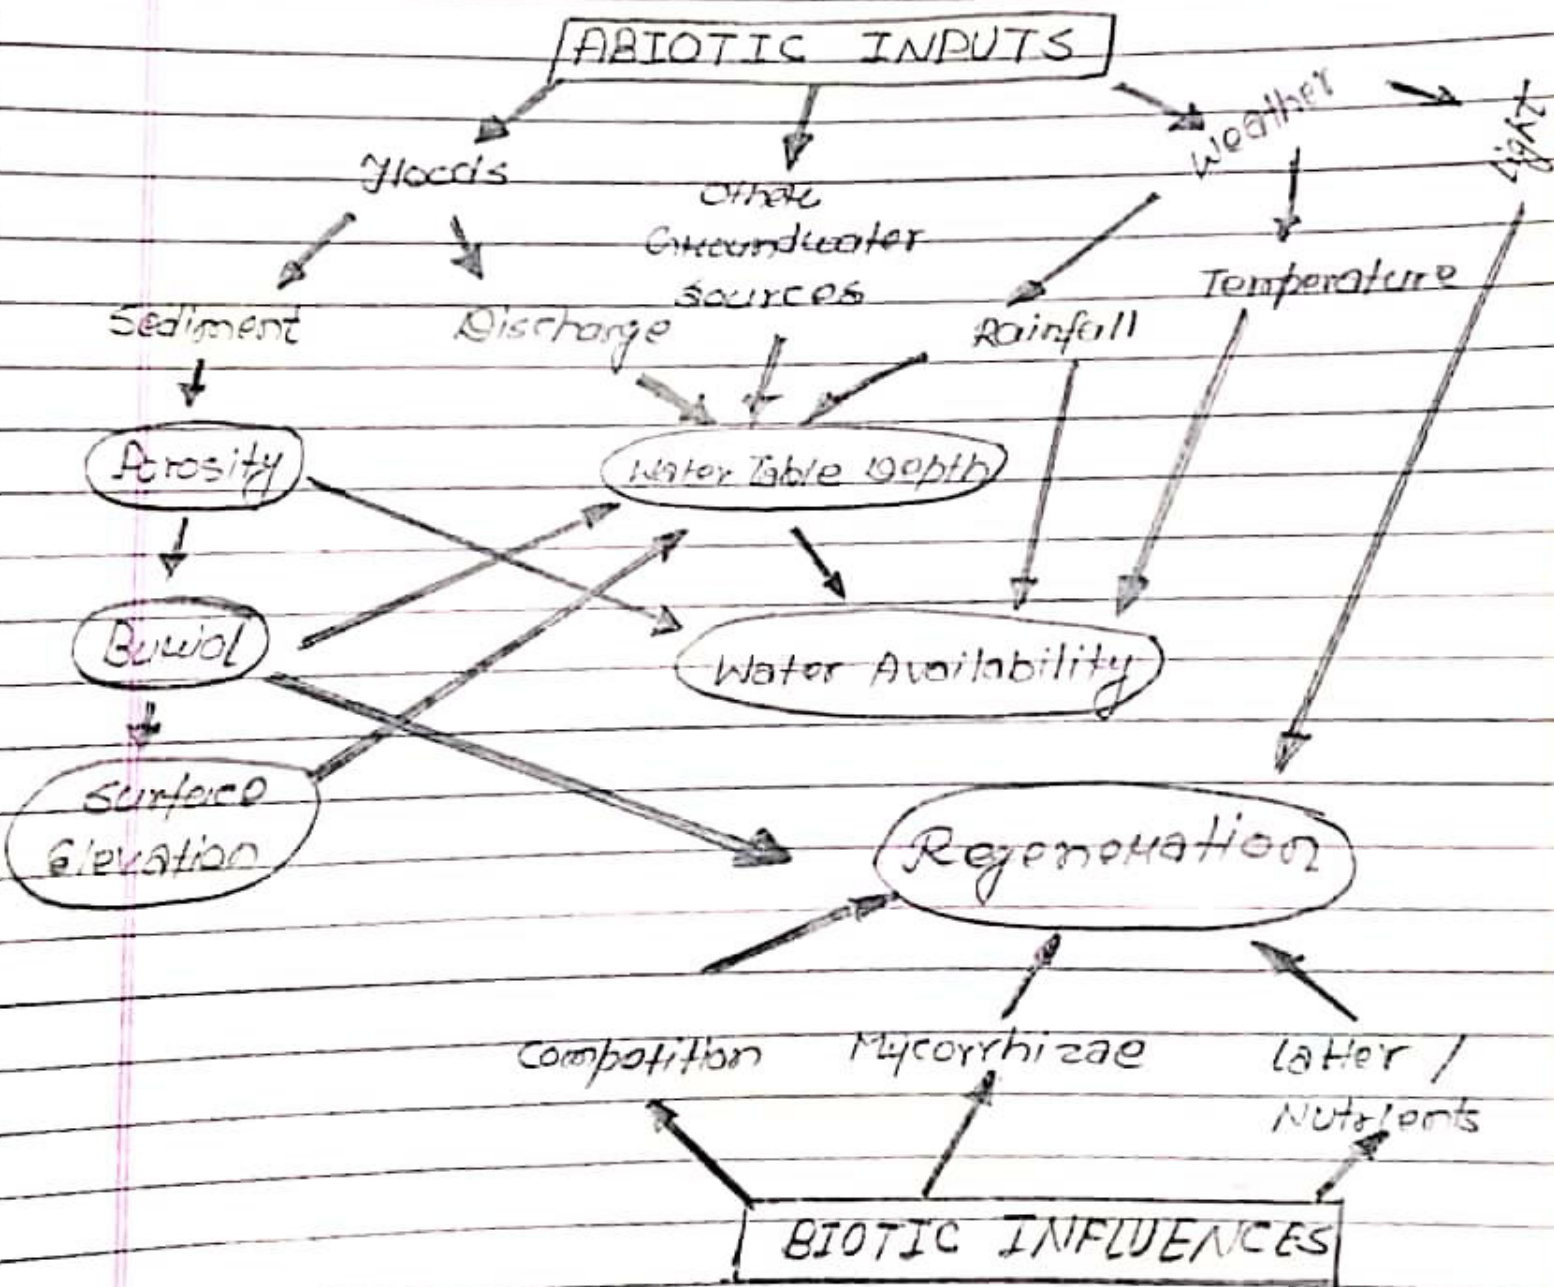 ABIOTIC INPUTS
Weather
Light
Floods
Other
Groundwater
Sources
Temperature
Sediment
Discharge
Rainfall
Porosity
Water Table Depth
Burial
Water Availability
Surface
Elevation
Regeneration
Competition
Mycorrhizae
Latter /
Nutrients
BIOTIC INFLUENCES